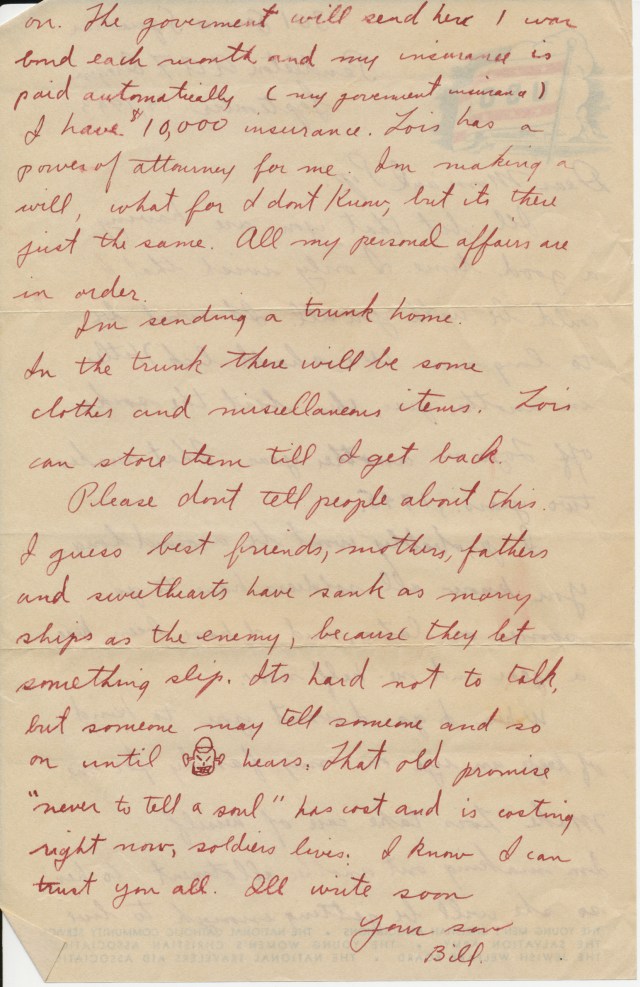 on. The goverment will send here 1 war
bond each month and my insurance is
paid automatically (my goverment insurance)
I have $10,000 insurance. Lois has a
power of attourney for me. Im making a
will, what for I dont Know, but its there
just the same. All my personal affairs are
in order.
Im sending a trunk home.
In the trunk there will be some
clothes and miscellaneous items. Lois
can store them till I get back.
Please dont tell people about this.
I guess best friends, mothers, fathers
and sweethearts have sank as many
ships as the enemy, because they let
something slip. Its hard not to talk,
but someone may tell someone and so
on until hears. That old promise
"never to tell a soul" has cost and is costing
right now, soldiers lives. I know I can
trust you all. Ill write soon
Your son
Bill.